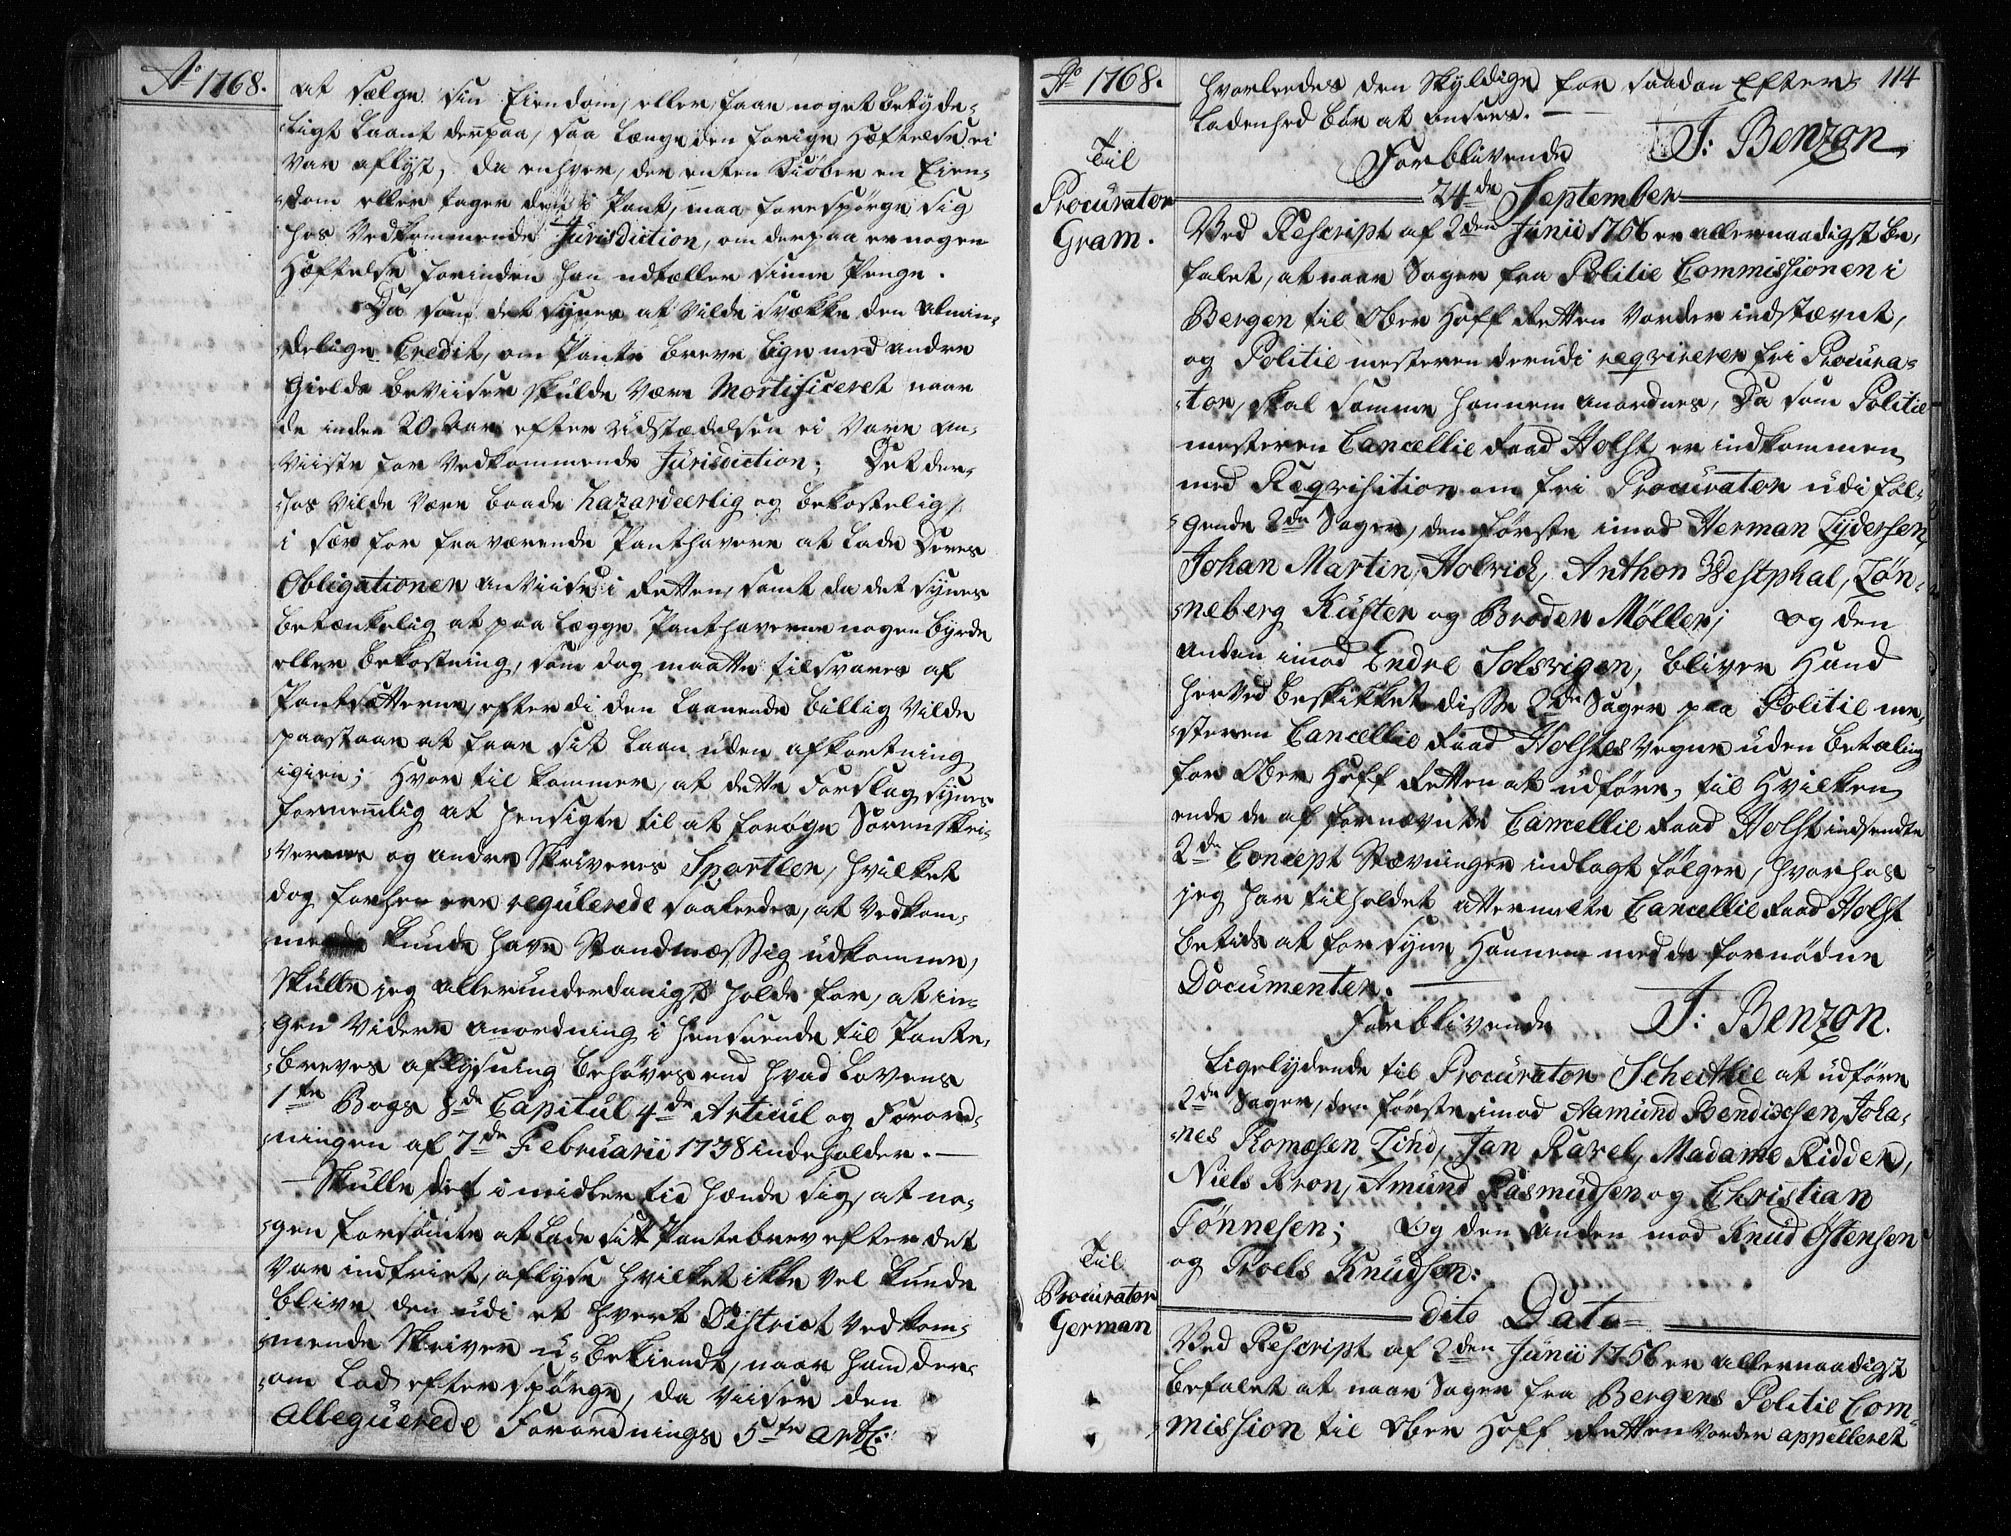 Ao 1768.
at sælge sin Eiendom, eller faae noget betyde-
-ligt Laant derpaa, saa længe den forige Hæftelse ei
var aflyst, da enhver, der enten Kiøber en Eien-
-dom eller tager den i Pant, maa forespørge sig
hos Vedkommende Jurisdiction, om derpaa er nogen
Hæftelse forinden han udtæller sinne Penge.
Da som det synes at vilde svække den almin-
-delige Credit, om Pante breve lige med andre
Gields beviiser skulde være Mortificeret naar
de inden 20 Aar efter Udstædelsen ei vare an-
-viiste for Vedkommende Jurisdiction; Det der-
-hos vilde være baade hazardeerlig og bekostelig
i sær for fraværende Panthavere at lade Deres
Obligationer anviise i Retten, samt da det synes
betænkelig at paa lægge Panthaverne nogen byrde
eller bekostning, som dog maatte tilsvares af
Pantsætterne, efterdi den Laanende billig vilde
paastaae at faae sit Laan uden afkortning
igien; Hvor til kommer, at dette Forslag synes
fornemlig at hensigte til at forøge Sorenskri-
-verens og andre Skriveres Sportler, hvilket
dog forhen ere regulerede saaledes, at Vedkom-
-mende kunde have Standmæssig udkomme,
skulle jeg allerunderdanigst holde for, at in-
-gen videre anordning i henseende til Pante-
-breves aflysning behøves end hvad Lovens
1te Bogs 8de Capitul 4de Articul og Forord-
-ningen af 7de Februarii 1738 indeholder.
Skulle det imidlertid hænde sig, at no-
-gen forsømte at lade sit Pantebrev efter det
var indfriet, aflyse hvilket ikke vel kunde
blive den udi et hvert District Vedkom-
-mende Skriver u-bekiendt, naar hand der-
-om lod efterspørge, da viiser den
alleguerede Forordnings 5te Artl:
Ao 1768.
114
hvorledes den Skyldige for saadan Efter-
ladenhed bør at ansees.
Forblivende J: Benzon
24de September
Til
Procurator
Gram.
Ved Rescript af 2den Junii 1756 er allernaadigst be-
falet, at naar Sager fra Politie Commissionen i
Bergen til Ober Hoff Retten vorder indstævnt,
og Politie mesteren derudi reqvirerer fri Procura-
-tor, skal samme hannem anordnes, Da som Politie
mesteren Cancellie Raad Holst er indkommen
med Reqvisition om fri Procurator udi føl-
-gende 2de Sager, den første imod Herman Zydersen,
Johan Martin Holrich, Anthon Westphal, Zøn-
-neberg Küster og Broder Møller; og den
anden imod Endre Solsvigen, bliver Hand
herved beskikket disse 2de Sager paa Politie me-
-steren Cancellie Raad Holstes vegne uden betaling
for Ober Hoff Retten at udføre, til hvilken
ende de af fornævnte Cancellie Raad Holst indsendte
2de Concept Stævninger indlagt følger, hvorhos
jeg har tilholdet attermelte Cancellie Raad Holst
betids at forsyne Hannem med de fornødne
Documenter.
Forblivende J: Benzon.
Ligelydende til Procurator Scheitlie at udføre
2de Sager, den første imod Aamund Bendixsen, Joha-
-nes Tomæsen Lind, Jan Karel, Madame Ridder,
Niels Kron, Amund Rasmudsen og Christian
Tønnesen; Og den anden mod Knud Østensen
og Troels Knudsen:
dito Dato
Til
Procurator
German
Ved Rescript af 2den Junii 1756 er allernaadigst
befalet at naar Sager fra Bergens Politie Com-
mission til Ober Hoff Retten vorder appelleret